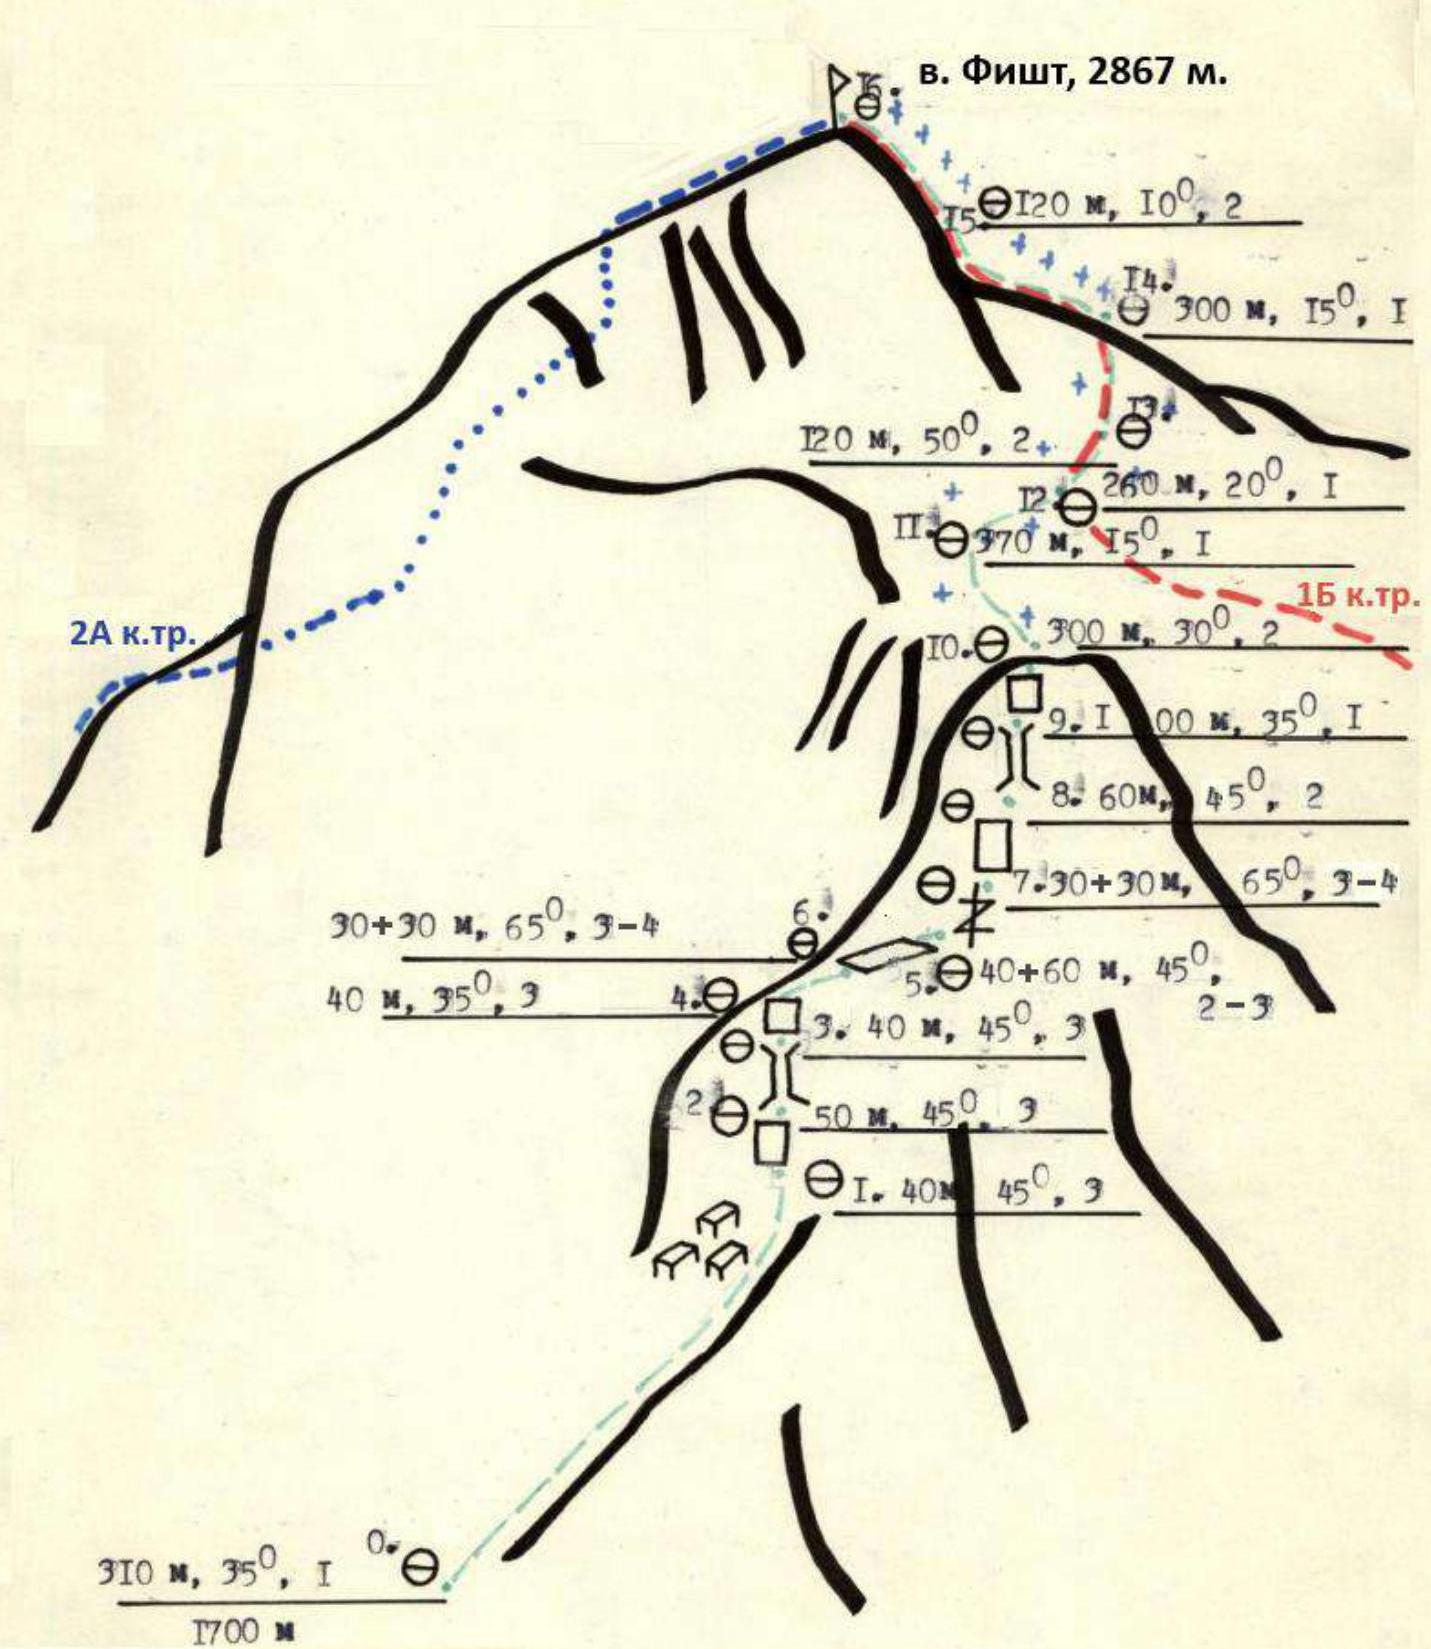 16.
в. Фишт, 2867 м.
15. 120 м, 10⁰, 2
14.
300 м, 15⁰, I
13.
120 м, 50⁰, 2
12. 260 м, 20⁰, I
11. 370 м, 15⁰, I
1Б к.тр.
2А к.тр.
10. 300 м, 30⁰, 2
9. I00 м, 35⁰, I
8. 60м, 45⁰, 2
7. 30+30м, 65⁰, 3-4
6.
30+30 м, 65⁰, 3-4
5. 40+60 м, 45⁰,
2-3
40 м, 35⁰, 3 4.
3. 40 м, 45⁰, 3
2. 50 м, 45⁰, 3
I. 40м 45⁰, 3
0.
3I0 м, 35⁰, I
I700 м